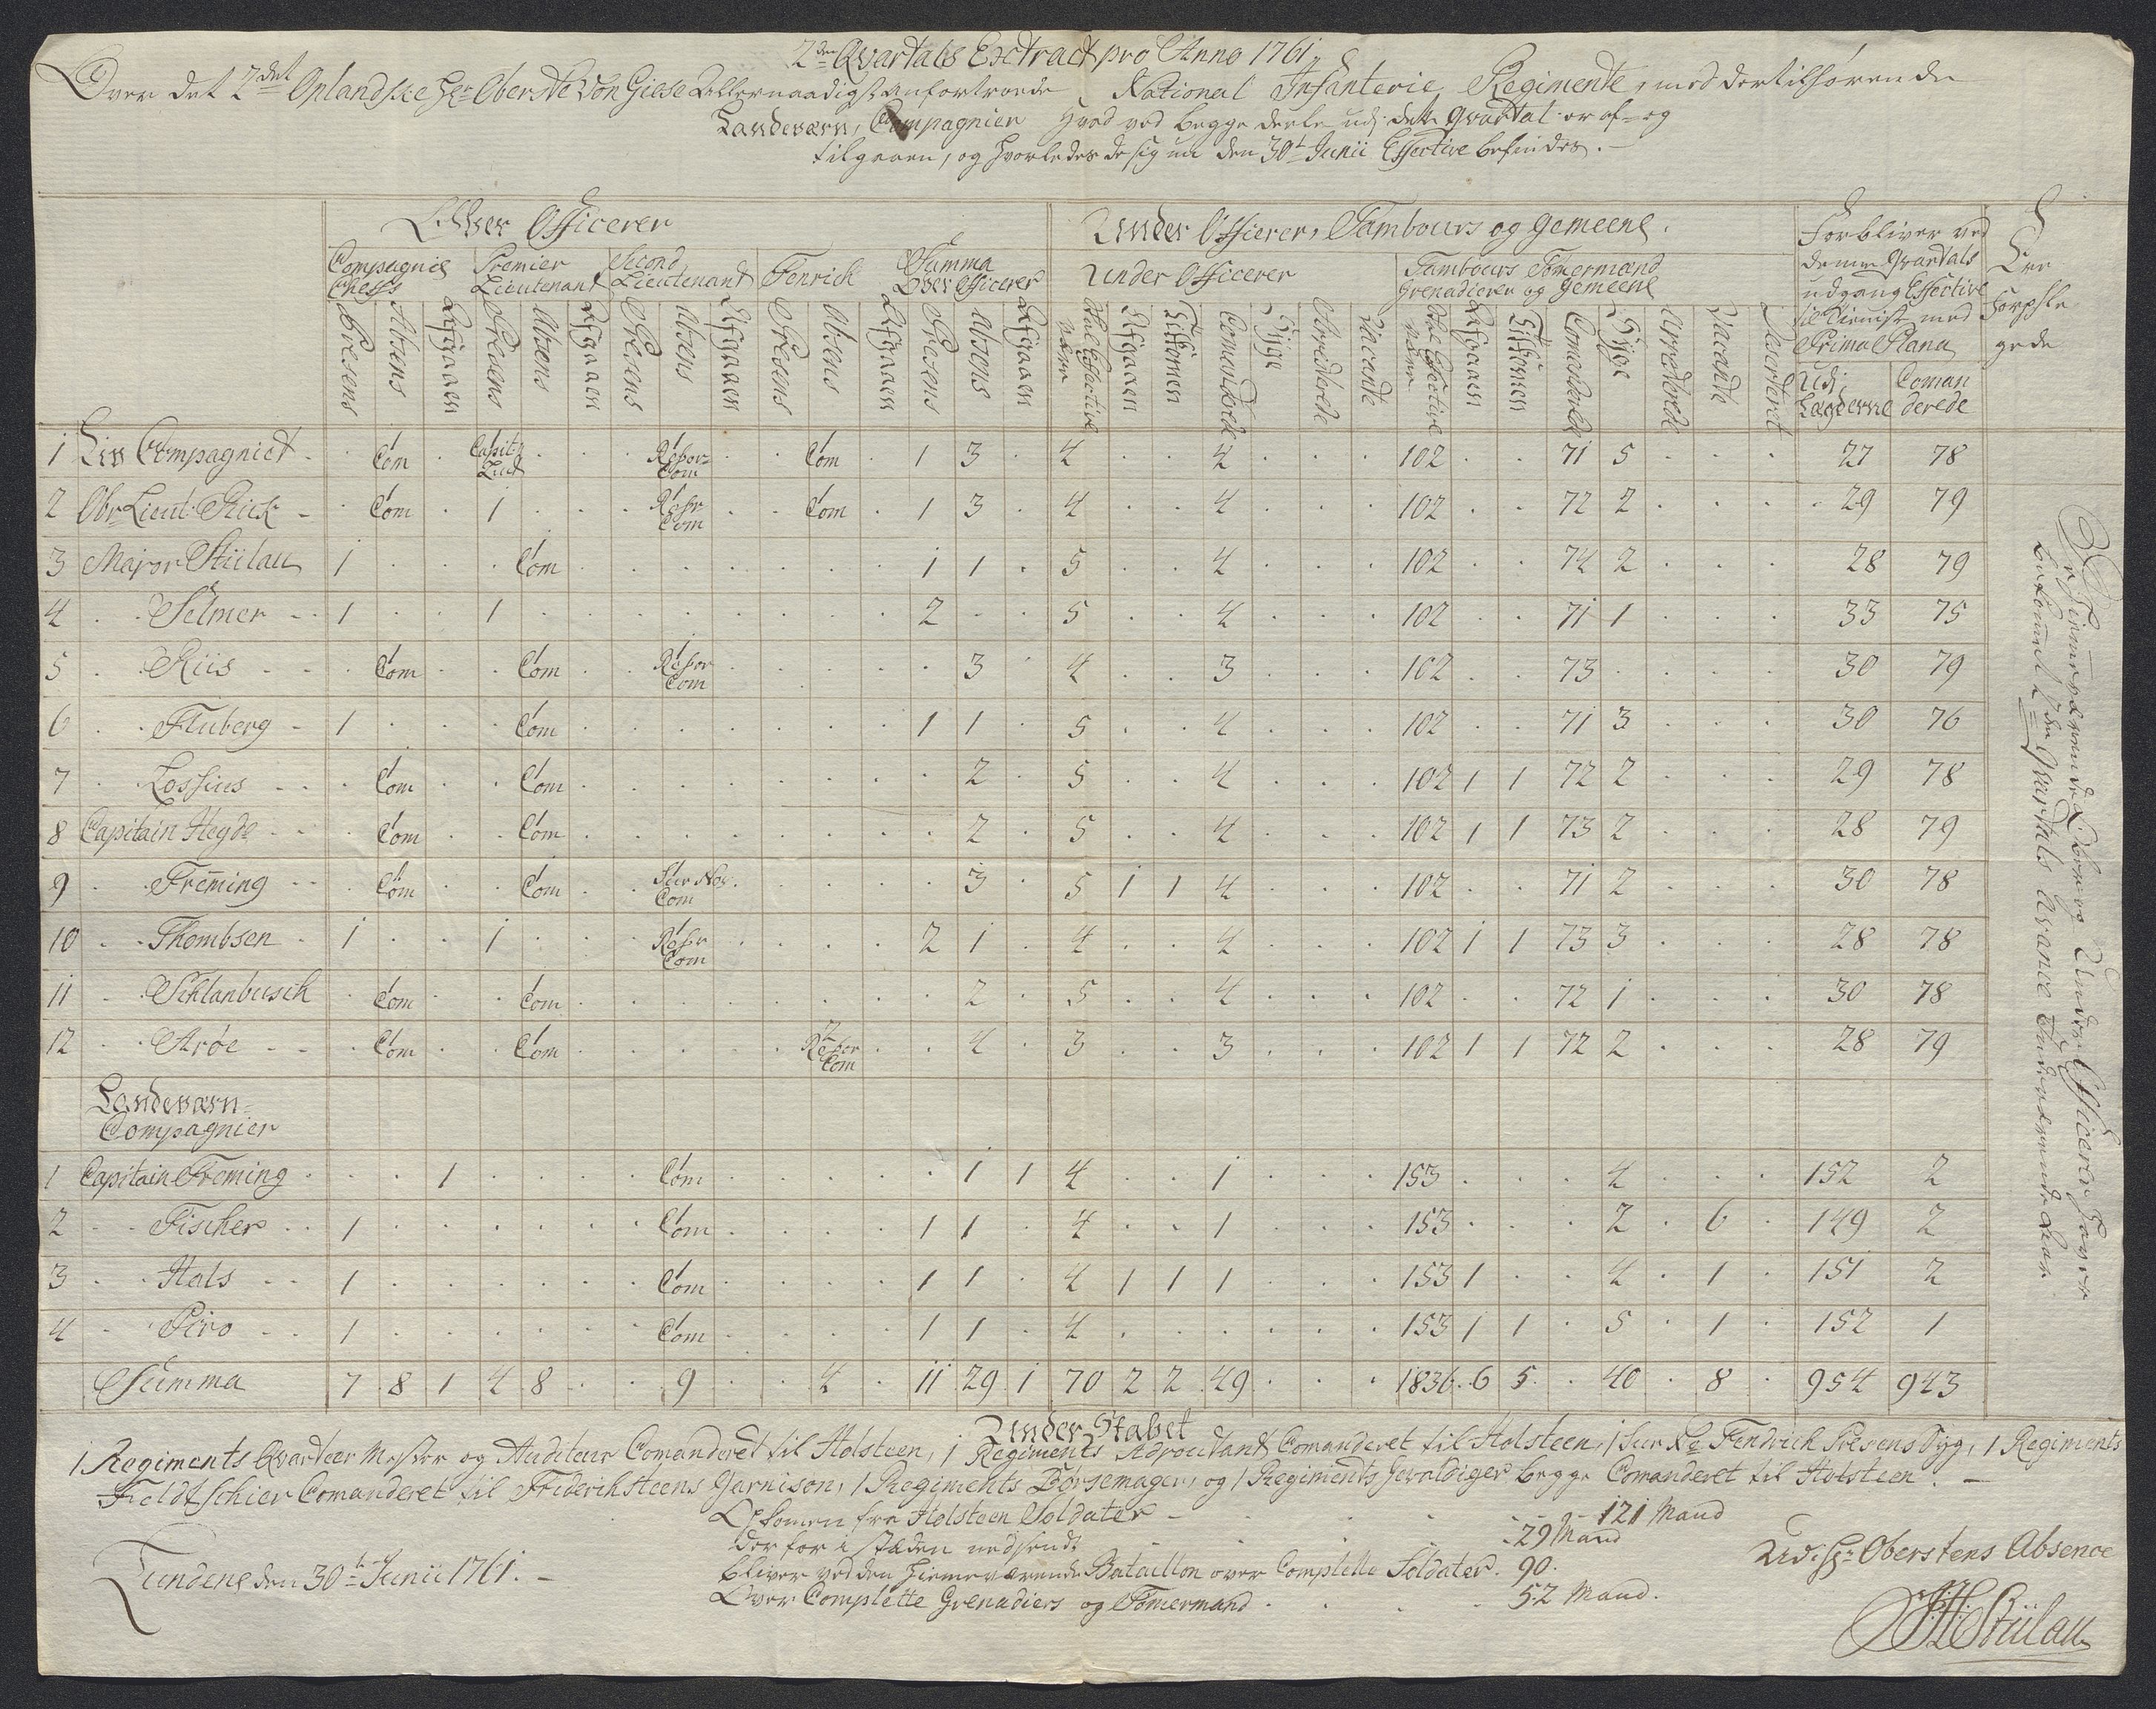 2den Qvartals Extract pro Anno 1761
Over det 2det Oplandske Hr Oberste von Giese Allernaadigst anfortroede National Infanterie Regimente, med dertilhørende
Landeværn, Compagnier Hvad ved begge deele udj dette Qvartal er af- og
tilgaaen, og hvorledes de sig nu den 30t Junii Effective befindes.
Over Officerer
Under Officerer, Tambours og gemeene.
Forbliver ved denne Qvartals udgang Effective til Tieniste med Prima Plana
Compagnie Chefs
Premier Lieutenant
Second Lieutenant
Fenrich
Summa Over Officerer
Under Officerer
Tambours Tømermænd Grenadierer og Gemeene
Presens Absens Afgaaen Presens Absens Afgaaen Presens Absens Afgaaen Presens Absens Afgaaen Presens Absens Afgaaen
Skal Effective være Afgaaen Tilkomen Comanderede Syge Arresterede Vacante
Skal Effective være Afgaaen Tilkomen Comanderede Syge Arresterede Vacante Deserteret
Udj Lægderne Comanderede
1 Liv Compagniet . . 1 Com . Capit: Lieut . . . 1 Refor: Com . . 1 Com . 1 3 . 4 . . 4 . . . 102 . . 71 5 . . . 27 78
2 Obr Lieut. Rick . 1 Com . 1 . . . 1 Refor Com . . 1 Com . 1 3 . 4 . . 4 . . . 102 . . 72 2 . . . 29 79
3 Major Stülau 1 . . . 1 Com . . . . . . . 1 1 . 5 . . 4 . . . 102 . . 74 2 . . . 28 79
4 . . Selmer 1 . . 1 . . . . . . . . 2 . . 5 . . 4 . . . 102 . . 71 1 . . . 33 75
5 . . Riis . 1 Com . . 1 Com . . 1 Refor Com . . . . . 3 . 4 . . 3 . . . 102 . . 73 . . . . 30 79
6 . . Fluberg 1 . . . 1 Com . . . . . . . 1 1 . 5 . . 4 . . . 102 . . 71 3 . . . 30 76
7 . . Lossius . 1 Com . . 1 Com . . . . . . . . 2 . 5 . . 4 . . . 102 1 1 72 2 . . . 29 78
8 Capitain Hegde . 1 Com . . 1 Com . . . . . . . . 2 . 5 . . 4 . . . 102 1 1 73 2 . . . 28 79
9 . . Frēming . 1 Com . . 1 Com . . Com . . . . . 3 . 5 1 1 4 . . . 102 . . 71 2 . . . 30 78
10 . . Thombsen 1 . . 1 . . . 1 Refor Com . . . . 2 1 . 4 . . 4 . . . 102 1 1 73 3 . . . 28 78
11 . . Schlanbusch . 1 Com . . 1 Com . . . . . . . . 2 . 5 . . 4 . . . 102 . . 72 1 . . . 30 78
12 . . Arøe . 1 Com . . 1 Com . . . . . 2 Refor Com . . 4 . 3 . . 3 . . . 102 1 1 72 2 . . . 28 79
Landeværn-
Compagnier
1 Capitain Freming . . 1 . . . . 1 Com . . . . . 1 1 4 . . 1 . . . 153 . . . 4 . . . 152 2
2 . . Fischer 1 . . . . . . 1 Com . . . . 1 1 . 4 . . 1 . . . 153 . . . 2 . 6 . 149 2
3 . . Hals 1 . . . . . . 1 Com . . . . 1 1 . 4 1 1 1 . . . 153 1 . . 4 . 1 . 151 2
4 . . Piro 1 . . . . . . 1 Com . . . . 1 1 . 4 . . . . . . 153 1 1 . 5 . 1 . 152 1
Summa 7 8 1 4 8 . . 9 . . 4 . 11 29 1 70 2 2 49 . . . 1836 6 5 . 40 . 8 . 954 943
Under Officerer
2den Qvartals Avance
Under Stabet
1 Regiments Qvarteer Mester og Auditeur Comanderet til Holsteen, 1 Regiments Adjoudant Comanderet til Holsteen, 1 Fendrich Presens Syg, 1 Regiments
Feldtschier Comanderet til Friderichsteens Garnison, 1 Regiments Børsemager, og 1 Regiments Gevaldiger begge Comanderet til Holsteen.
Opkomen fra Holsteen Soldater 121 Mand
der for i stæden nedsendt 29 Mand
bliver ved den hiemeværende Batallion over Complette Soldater 90.
Over Complette Grenadiers og Tømermænd 52 Mand.
Tundene den 30t Junii 1761.
Udj Hr Oberstens Absence
Stülau